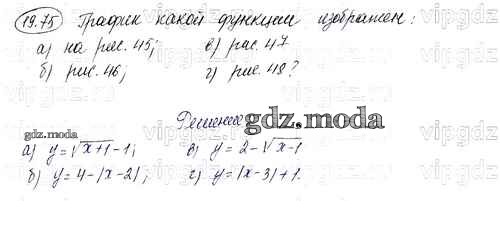 19.75 График какой функции изображен:
а) на рис. 45; в) рис. 47
б) рис. 46; г) рис. 48?
Решение
gdz.moda
gdz.moda
а) y=√x+1-1; в) y=2-√x-1
б) y=4-|x-2|; г) y=|x-3|+1.